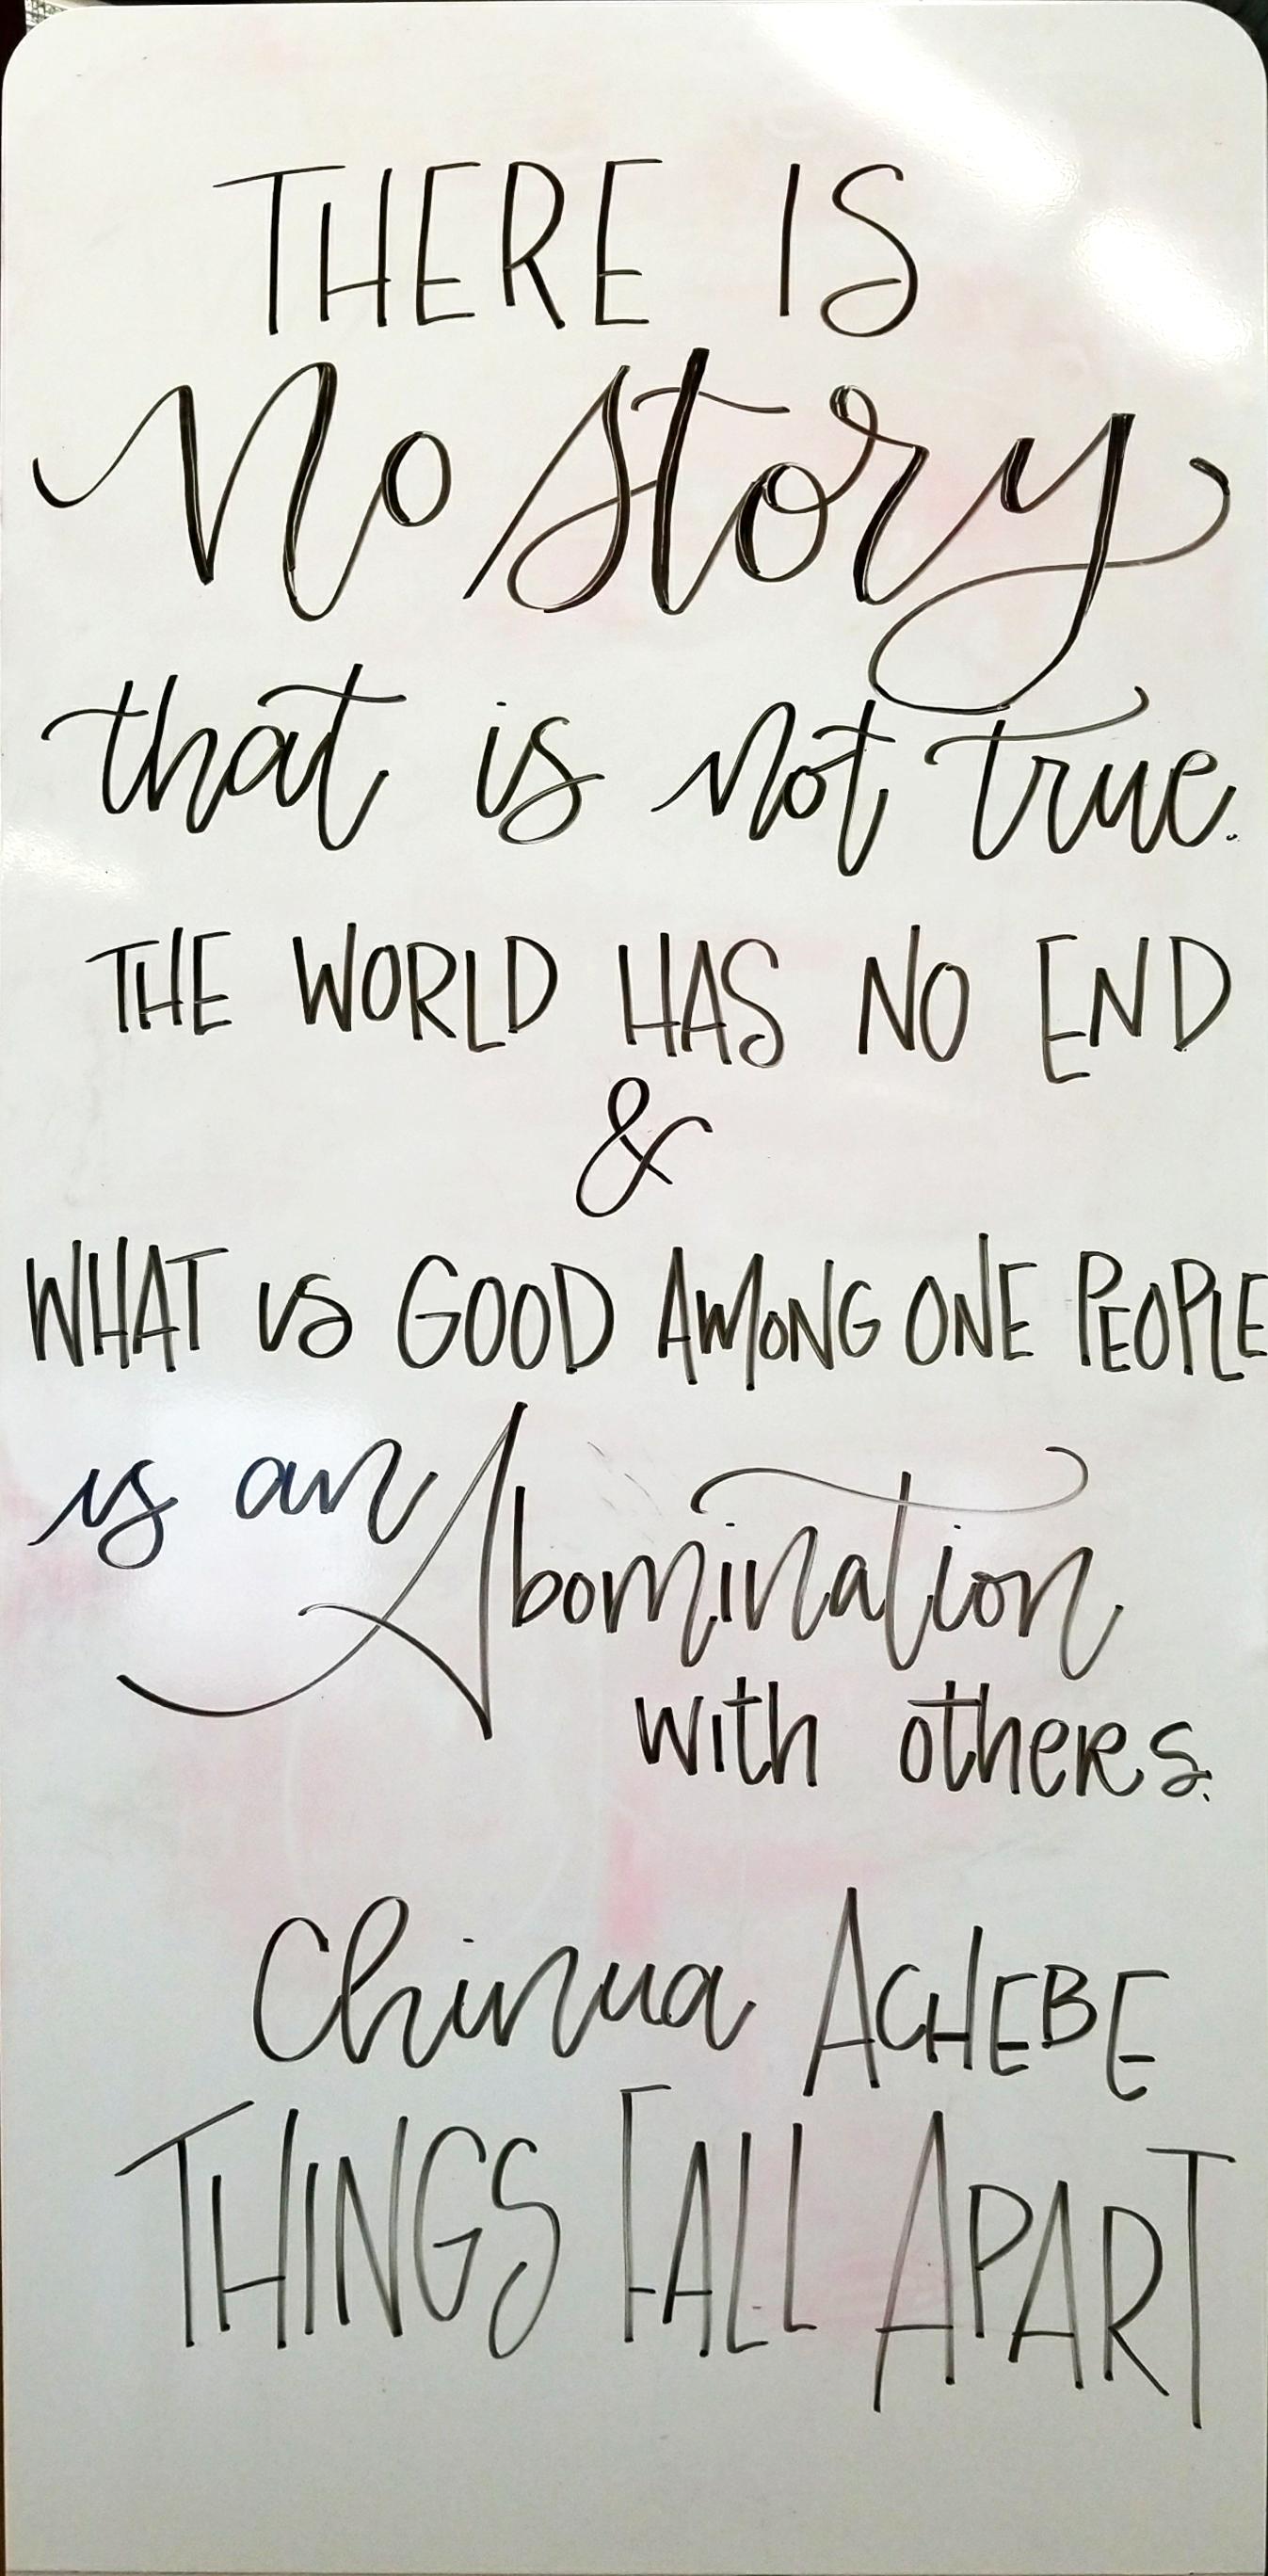 THERE IS
No story
that is not true.
THE WORLD HAS NO END
&
WHAT is GOOD AMONG ONE PEOPLE
is an Abomination
with others.
Chinua ACHEBE
THINGS FALL APART